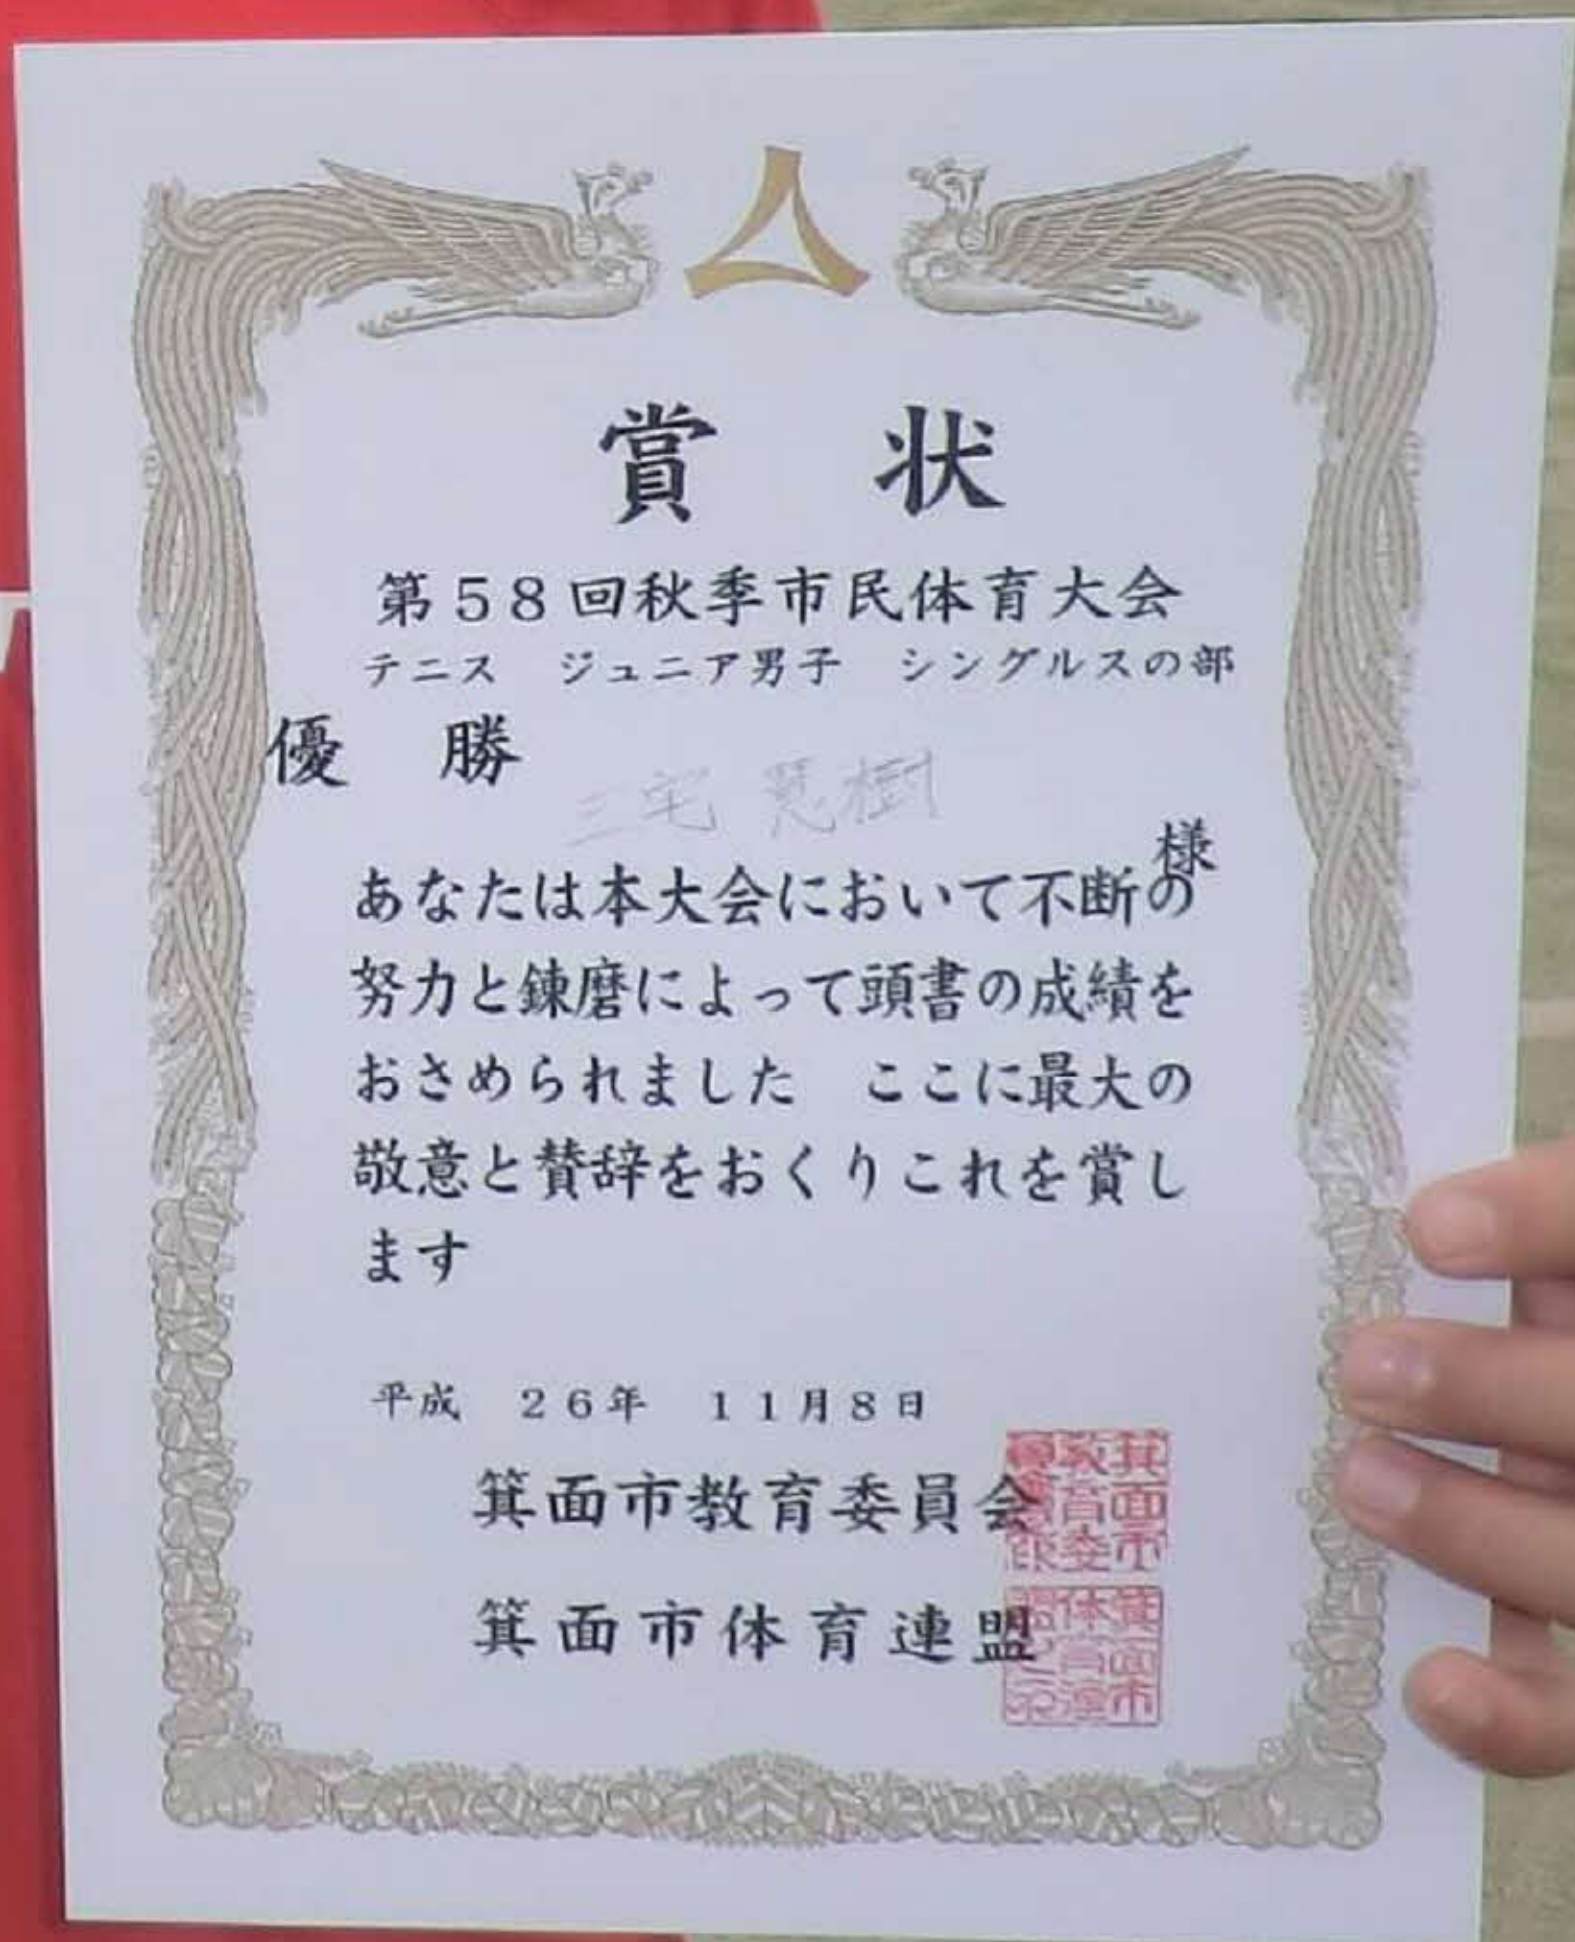 賞状
第58回秋季市民体育大会
テニス ジュニア男子 シングルスの部
優勝
三宅 慧樹
様
あなたは本大会において不断の
努力と錬磨によって頭書の成績を
おさめられました ここに最大の
敬意と賛辞をおくりこれを賞し
ます
平成 26年 11月8日
箕面市教育委員会
箕面市体育連盟